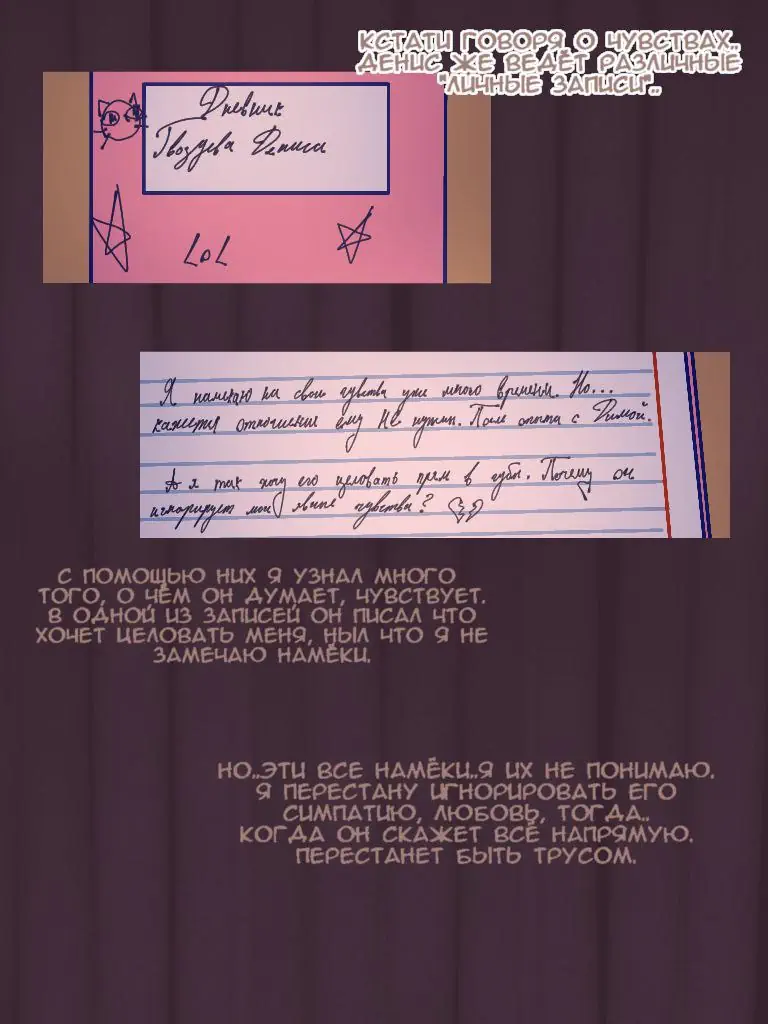 КСТАТИ ГОВОРЯ О ЧУВСТВАХ..
ДЕНИС ЖЕ ВЕДЁТ РАЗЛИЧНЫЕ
"ЛИЧНЫЕ ЗАПИСИ"..
Дневник
Гвоздева Дениса
LOL
Я намекаю на свои чувства уже много времени. Но...
кажется отношения ему НЕ нужны. После опыта с Димой.
А я так хочу его целовать прям в губы. Почему он
игнорирует мои явные чувства?
С ПОМОЩЬЮ НИХ Я УЗНАЛ МНОГО
ТОГО, О ЧЁМ ОН ДУМАЕТ, ЧУВСТВУЕТ.
В ОДНОЙ ИЗ ЗАПИСЕЙ ОН ПИСАЛ ЧТО
ХОЧЕТ ЦЕЛОВАТЬ МЕНЯ, НЫЛ ЧТО Я НЕ
ЗАМЕЧАЮ НАМЁКИ.
НО..ЭТИ ВСЕ НАМЁКИ..Я ИХ НЕ ПОНИМАЮ.
Я ПЕРЕСТАНУ ИГНОРИРОВАТЬ ЕГО
СИМПАТИЮ, ЛЮБОВЬ, ТОГДА..
КОГДА ОН СКАЖЕТ ВСЁ НАПРЯМУЮ.
ПЕРЕСТАНЕТ БЫТЬ ТРУСОМ.